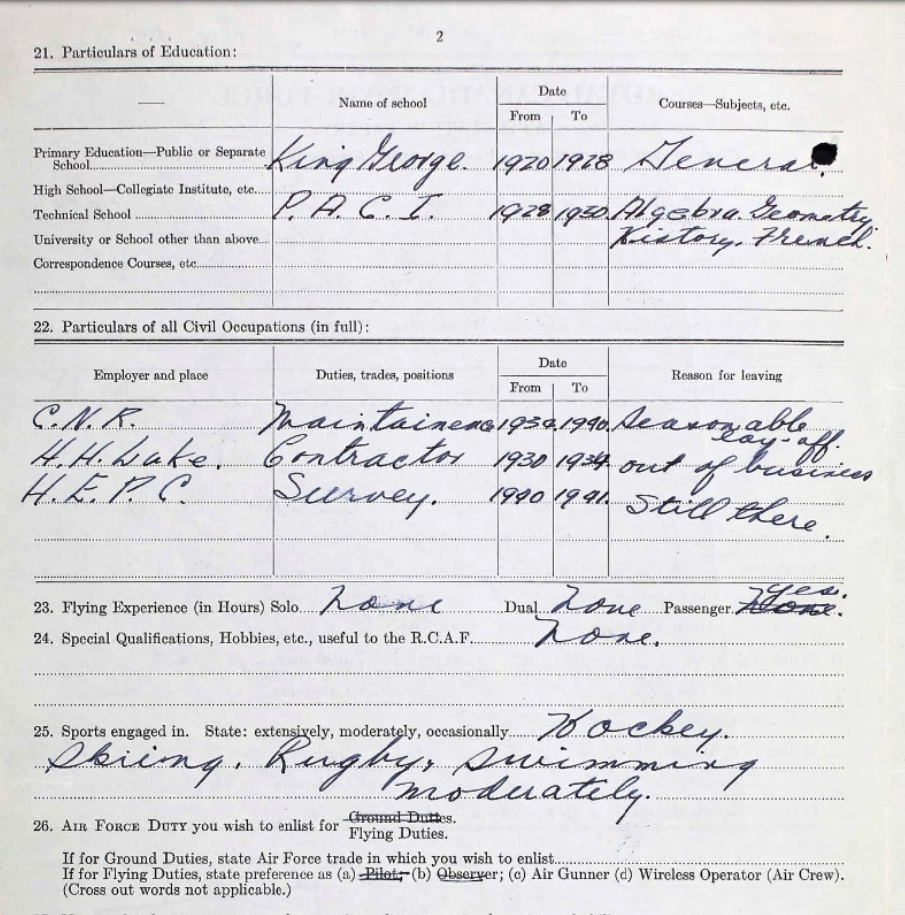 2
21. Particulars of Education:
Name of school Date From To Courses—Subjects, etc.
Primary Education—Public or Separate School King George. 1920 1928 General.
High School—Collegiate Institute, etc.
Technical School P. A. C. I. 1928 1930 Algebra. Geometry
University or School other than above History. French.
Correspondence Courses, etc
22. Particulars of all Civil Occupations (in full):
Employer and place Duties, trades, positions Date From To Reason for leaving
C.N.R. 1940. Seasonable
lay-off.
H.H. Lake. Contractor 1930 1934 out of business
H.E.P.C. Survey. 1940 1941. Still there.
23. Flying Experience (in Hours) Solo None Dual None Passenger None. yes.
24. Special Qualifications, Hobbies, etc., useful to the R.C.A.F. None.
25. Sports engaged in. State: extensively, moderately, occasionally Hockey.
Skiing. Rugby, Swimming
moderately.
26. AIR FORCE DUTY you wish to enlist for Ground Duties.
Flying Duties.
If for Ground Duties, state Air Force trade in which you wish to enlist
If for Flying Duties, state preference as (a) Pilot; (b) Observer; (c) Air Gunner (d) Wireless Operator (Air Crew).
(Cross out words not applicable.)